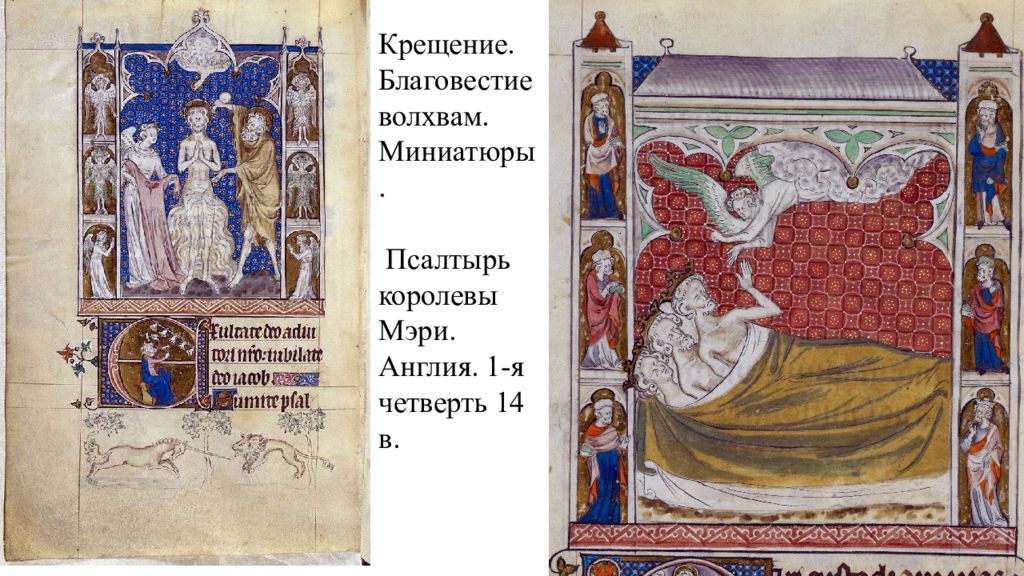 Крещение.
Благовестие
волхвам.
Миниатюры
.
Псалтырь
королевы
Мэри.
Англия. 1-я
четверть 14
в.
Exultate deo adiu
tori nr̄o iubilate
deo iacob
Sumite psal